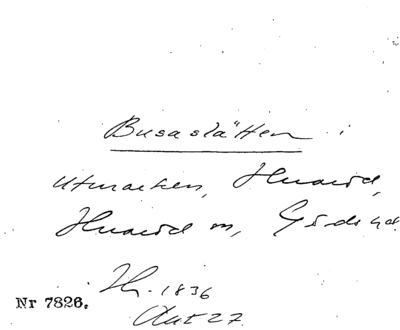 Busaslätten i
utmarken, Hvarid,
Hvarid m, Gids hd.
Th. 1836
Akt 27
Nr 7826.